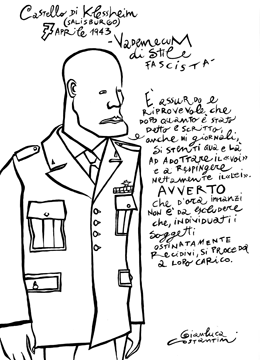 CASTELLO DI KLESSHEIM
(SALISBURGO)
7 APRILE 1943
-VADEMECUM
di STILE
FASCISTA-
È ASSURDO e
RIPROVEVOLE che
DOPO QUANTO È STATO
DETTO e SCRITTO,
ANCHE sui giornali,
Si STENTI QUA e LÀ
AD ADOTTARE il «VOI»
e A RESPINGERE
NETTAMENTE il «LEI».
AVVERTO
che D'ORA INNANZI
NON È DA ESCLUDERE
CHE, INDIVIDUATI i
SOGGETTI
OSTINATAMENTE
RECIDIVI, Si PROCEDA
A LORO CARICO.
Gianluca
COSTANTINI